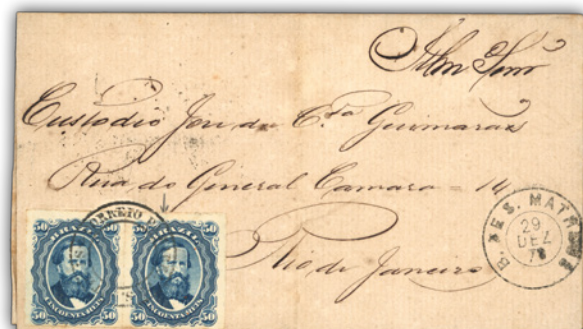 Illmo Snr
Custodio Jose da Cta Guimarães
Rua do General Camara = 14
Rio de Janeiro
B. DE S. MATHEUS
29
DEZ
78
CORREIO
50 BRAZIL 50
CINCOENTA REIS
50 50
50 BRAZIL 50
CINCOENTA REIS
50 50